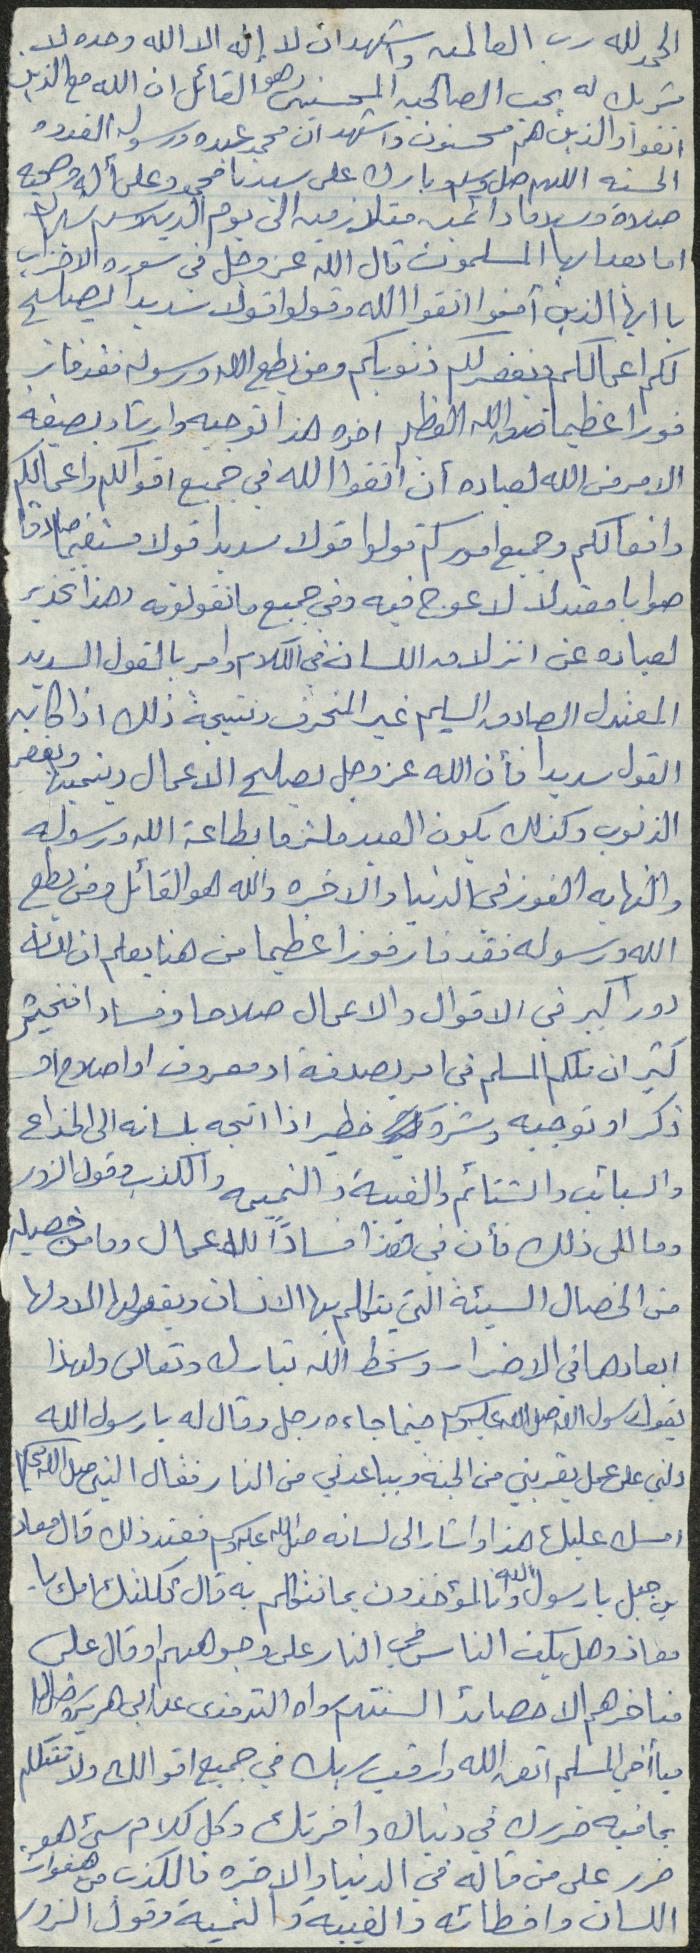 الحمد لله رب العالمين واشهد ان لا إله الا الله وحده لا
شريك له يحب الصالحين المحسنين وهو القائل ان الله مع الذين
اتقوا والذين هم محسنون واشهد ان محمد عبده ورسوله القدوه
الحسنه اللهم صل وسلم وبارك على سيدنا محمد وعلى أله وصحبه
صلاة وسلاما دائمين متلازمين الى يوم الدين
اما بعد ايها المسلمون قال الله عز وجل في سوره الاحزاب
يا ايها الذين أمنوا اتقوا الله وقولوا قولا سديدا يصلح
لكم اعمالكم ويغفر لكم ذنوبكم ومن يطع الله ورسوله فقد فاز
فوزا عظيما صدق الله العظيم اخوه هذا توجيه وارشاد بصيغة
الامر من الله لعباده أن اتقوا الله في جميع اقوالكم واعمالكم
وافعالكم وجميع اموركم قولوا قولا سديدا قولا مستقيما صادقا
صوابا معتدلا لا عوج فيه وفي جميع ما تقولونه وهذا تحذير
لعباده عن انزلاق اللسان في الكلام وامر بالقول السديد
المعتدل الصادق السليم غير المنحرف ونتيجة ذلك اذا كان
القول سديدا فأن الله عز وجل يصلح الاعمال وينميها ويغفر
الذنوب وكذلك يكون العبد ملتزما بطاعة الله ورسوله
والنهايه الفوز في الدنيا والاخره والله هو القائل ومن يطع
الله ورسوله فقد فاز فوزا عظيما من هنا يعلم ان للسان
دورا كبر في الاقوال والاعمال صلاحا وفسادا فخير
كثير ان تكلم المسلم في امر بصدقة او معروف او اصلاح او
ذكر او توجيه وشر خطير اذا اتجه بلسانه الى الخداع
والسباب والشتائم والغيبة والنميمه والكذب وقول الزور
وما الى ذلك فأن في هذا فسادًا للاعمال وما من خصيله
من الخصال السيئة التي يتكلم بها الانسان ويقولها الا ولها
ابعادها في الاضرار وسخط الله تبارك وتعالى ولهذا
يقول رسول الله صلى الله عليه وسلم حينما جاءه رجل وقال له يا رسول الله
دلني على عمل يقربني من الجنة ويباعدني من النار فقال النبي صلى الله عليه وسلم
امسك عليك هذا واشار الى لسانه صلى الله عليه وسلم فعند ذلك قال معاذ
بن جبل يا رسول الله وانا لمؤاخذون بما نتكلم به قال ثكلتك امك يا
معاذ وهل يكب الناس في النار على وجوههم او قال على
مناخرهم الا حصائد السنتهم رواه الترمذي عن ابي هريره
فيا أخي المسلم اتق الله وراقب ربك في جميع اقوالك ولا تتكلم
بما فيه ضررك في دنياك واخرتك وكل كلام سيئ هو
ضرر على من قاله في الدنيا والاخره فالكذب من هفوات
اللسان واخطائه والغيبة والنميمة وقول الزور